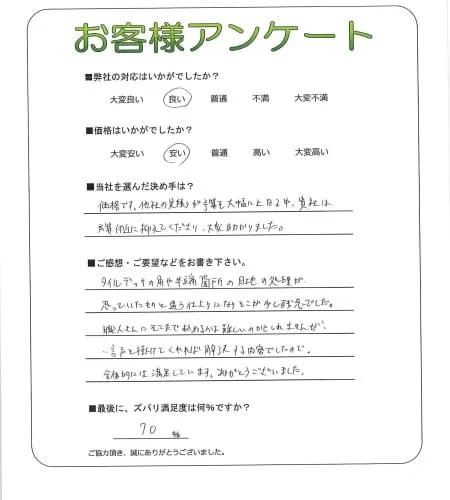 お客様アンケート
■弊社の対応はいかがでしたか？
大変良い 良い 普通 不満 大変不満
■価格はいかがでしたか？
大変安い 安い 普通 高い 大変高い
■当社を選んだ決め手は？
価格です。他社の見積りが予算を大幅に上回る中、貴社は
予算付近に抑えてくださり、大変助かりました。
■ご感想・ご要望などをお書き下さい。
タイルデッキの角や半端箇所の目地の処理が
思っていたものと違う仕上りになったことが少し残念でした。
職人さんにそこまで求めるのは難しいのかもしれませんが、
一言声を掛けてくれれば解決する内容でしたので。
全体的には満足しています。ありがとうございました。
■最後に、ズバリ満足度は何%ですか？
70 %
ご協力頂き、誠にありがとうございました。